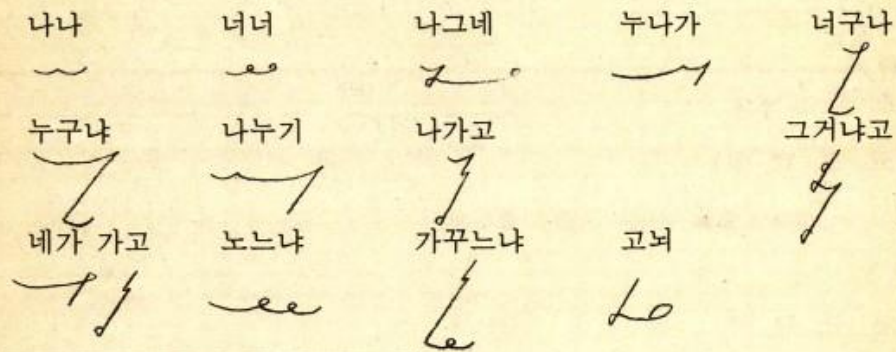 나나 너너 나그네 누나가 너구나
누구냐 나누기 나가고 그거냐고
네가 가고 노느냐 가꾸느냐 고뇌